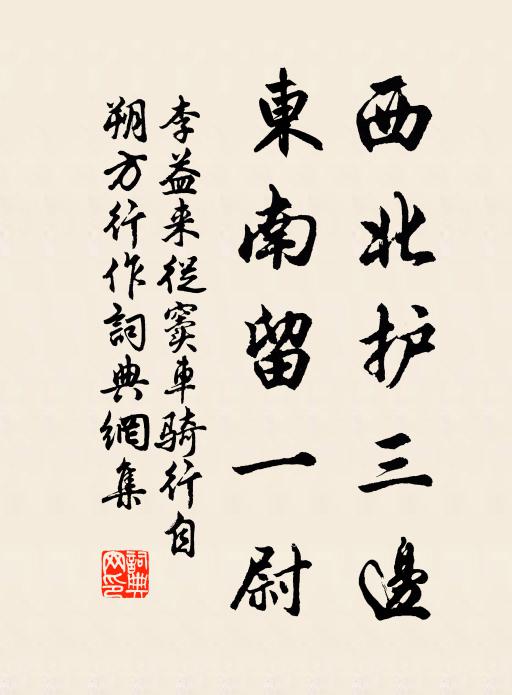 西北护三邊
東南留一尉
李益来從窦車骑行自
朔方行作詞典網集
詞典网印